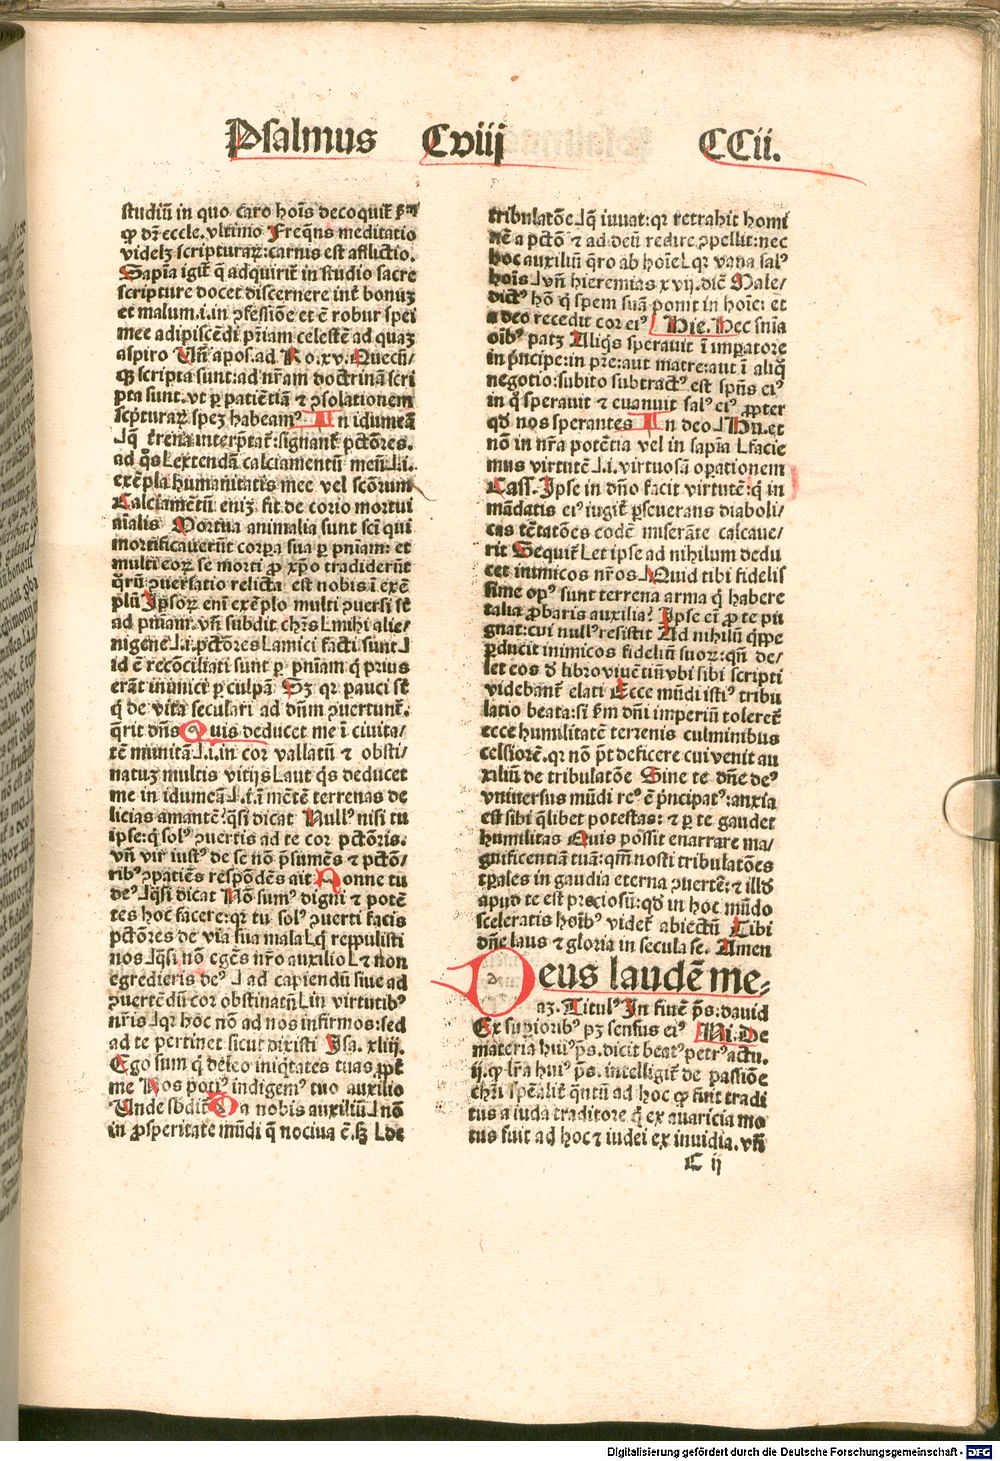 Psalmus Cviij CCii.
studiū in quo caro hoīs decoquit̄ ẜm
ꝙ dr̄ eccle. vltimo Freq̄ns meditatio
videlꝫ scripturaꝝ: carnis est afflictio.
Sapīa igit̄ q̄ adquirit̄ in studio sacre
scripture docet discernere int̄ bonuꝫ
et malum .i. in ꝯfessiōe et ē robur spei
mee adipiscēdi pr̄iam celestē ad quaꝫ
aspiro Vn̄ apos. ad Ro. xv. Quech/
cꝫ scripta sunt: ad nr̄am doctrinā scri
pta sunt. vt ꝑ patiētiā ⁊ ꝯsolationem
scp̄turaꝝ speꝫ habeamꝰ In idumeā
⅃q̄ t̄rena interp̄tat̄: signant̄ pctōres.
ad q̄s L extendā calciamentū meū ⅃.i.
exēpla humanitatis mee vel scōrum
Calciamētū eniꝫ fit de corio mortui
aīalis Mortua animalia sunt sc̄i qui
mortificauerūt corpꝛa sua ꝑ pn̄iam: et
multi eoꝝ se morti ꝓ xp̄o tradiderūt
q̄rū ꝯuersatio relicta est nobis ī exē
plū Ip̄soꝝ eni exēplo multi ꝯuersi st̄
ad pn̄iam. vn̄ subdit ch̄rs L mihi alie/
nigene ⅃.i. pctōres L amici facti sunt ⅃
id ē recōciliati sunt ꝑ pn̄iam q̄ prius
erāt inimici ꝑ culpā Sꝫ qꝛ pauci st̄
q̄ de vita seculari ad dn̄m ꝯuertunt̄.
q̄rit dn̄s Quis deducet me ī ciuita/
tē munitā ⅃.i. in cor vallatū ⁊ obsti/
natuꝫ multis vitijs L aut q̄s deducet
me in idumeā ⅃.i. ī mētē terrenas de
licias amantē? q̄si dicat Nullꝰ nisi tu
ipse: q̄ solꝰ ꝯuertis ad te cor pctōris.
vn̄ vir iustꝰ de se nō p̄sumēs ⁊ pctō/
ribꝰ ꝯpatiēs respōdēs ait Nonne tu
deꝰ ⅃q̄si dicat Nō sumꝰ digni ⁊ potē
tes hoc facere: qꝛ tu solꝰ ꝯuerti facis
pctōres de via sua mala L q̄ reppulisti
nos ⅃q̄si nō egēs nr̄o auxilio L ⁊ non
egredieris deꝰ ⅃ ad capiendū siue ad
ꝯuertēdū cor obstinatū L in virtutibꝰ
nr̄is ⅃qꝛ hoc nō ad nos infirmos: sed
ad te pertinet sicut dixisti Isa. xliij.
Ego sum q̄ deleo iniq̄tates tuas ꝓpt̄
me Nos potiꝰ indigemꝰ tuo auxilio
Vnde sbdit̄ Da nobis auxiliū ⅃ nō
in ꝓsperitate mūdi q̄ nociua ē. sꝫ L de
tribulatōe ⅃q̄ iuuat: qꝛ retrahit homi
nē a pctō ⁊ ad deū redire ꝯpellit: nec
hoc auxiliū q̄ro ab hoīe L qꝛ vana salꝰ
hoīs ⅃vn̄ hieremias xvij. dic̄ Male/
dictꝰ hō q̄ spem suā ponit in hoīe: et
a deo recedit cor eiꝰ Hie. Hec sn̄ia
oībꝰ patꝫ Aliqis sperauit ī impatore
in pͥncipe: in pr̄e: aut matre: aut ī aliq̄
negotio: subito subtractꝰ est spūs eiꝰ
in q̄ sperauit ⁊ euanuit salꝰ eiꝰ ꝓpter
qd̄ nos sperantes In deo ⅃ Hu. et
nō in nr̄a potētia vel in sapīa L facie
mus virtutē ⅃.i. virtuosā oꝑationem
Cass. Ipse in dn̄o facit virtutē: q̄ in
mādatis eiꝰ iugit̄ ꝑseuerans diaboli/
cas tētatōes eodē miserāte calcaue/
rit Sequit̄ L et ipse ad nihilum dedu
cet inimicos nr̄os ⅃Quid tibi fidelis
sime opꝰ sunt terrena arma q̄ habere
talia ꝓbaris auxilia? Ipse ei ꝓ te pu
gnat: cui nullꝰ resistit Ad nihilū q̄ppe
ꝑducit inimicos fideliū suoꝝ: qn̄ de/
let eos ꝺ libro viuētiū vbi sibi scripti
videbant̄ elati Ecce mūdi istiꝰ tribu
latio beata: si ẜm dn̄i imperiū toleret̄
ecce humilitatē terrenis culminibus
celsiorē. qꝛ nō pt̄ deficere cui venit au
xiliū de tribulatōe Sine te dn̄e deꝰ
vniuersus mūdi reꝰ ē pͥncipatꝰ: anxia
est sibi q̄libet potestas: ⁊ ꝑ te gaudet
humilitas Quis possit enarrare ma/
gnificentiā tuā: qm̄ nosti tribulatōes
tꝑales in gaudia eterna ꝯuertē: ⁊ illd̄
apud te est preciosū: qd̄ in hoc mūdo
sceleratis hoībꝰ videt̄ abiectū Tibi
dn̄e laus ⁊ gloria in secula se. Amen
Deus laudē me⸗
aꝫ. Titulꝰ In finē p̄s: dauid
Ex supioribꝰ pꝫ sensus eiꝰ Ni. De
materia huiꝰ p̄s. dicit beatꝰ petrꝰ actu.
ij. ꝙ lr̄a huiꝰ p̄s. intelligit̄ de passiōe
chr̄i spēalit̄ q̄ntū ad hoc ꝙ fuit tradi
tus a iuda traditore q̄ ex auaricia mo
tus fuit ad hoc ⁊ iudei ex inuidia. vn̄
C ij
Digitalisierung gefördert durch die Deutsche Forschungsgemeinschaft - DFG